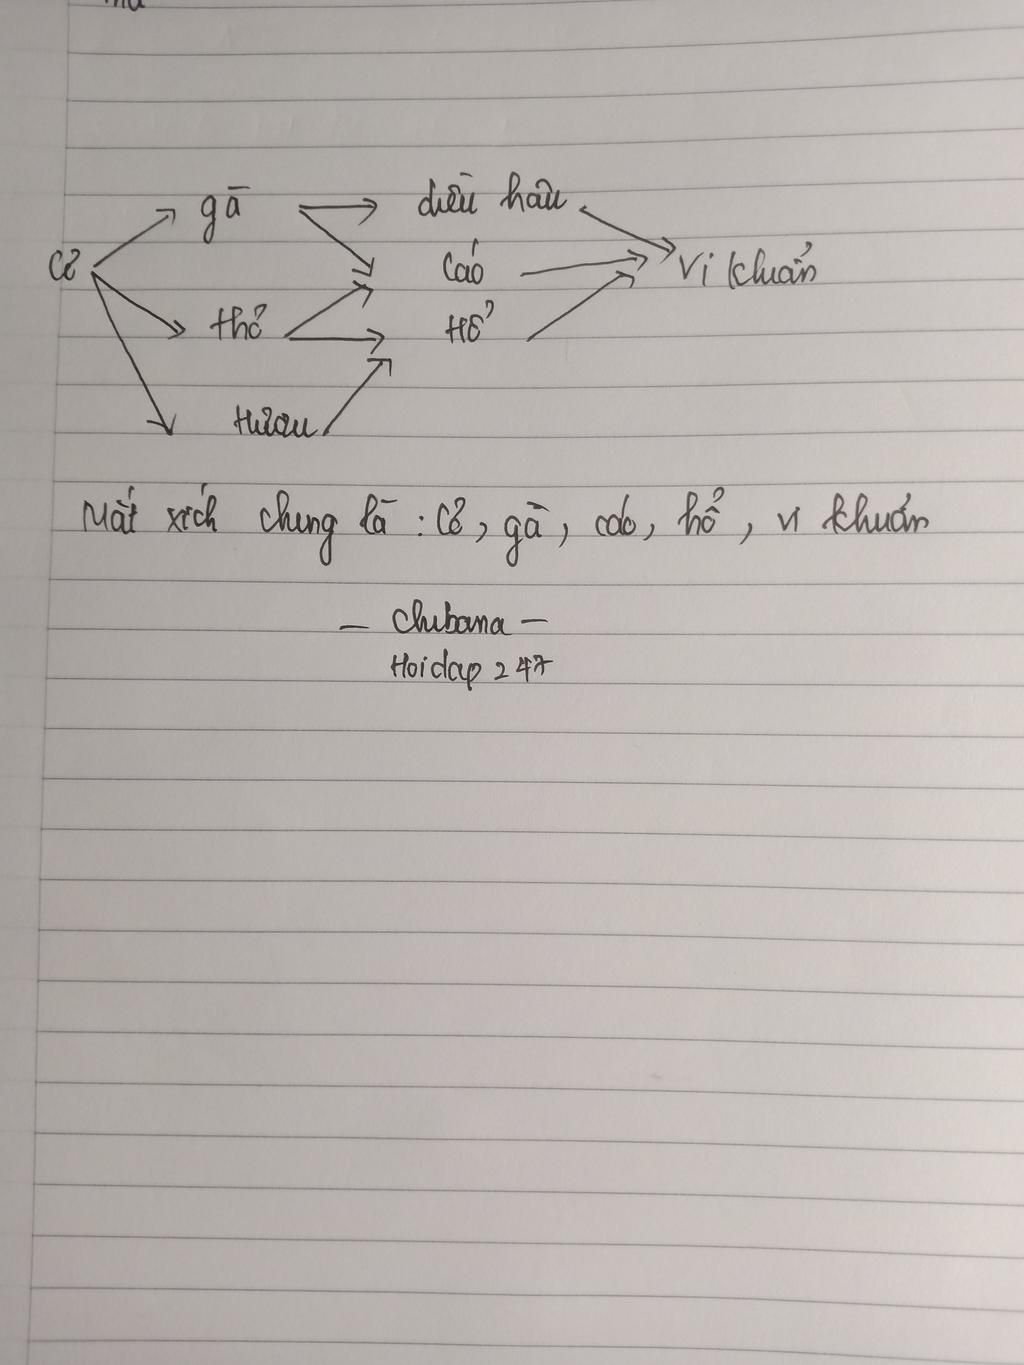 cỏ gà diều hâu
thỏ cáo vi khuẩn
hươu Hổ
Mắt xích chung là : Cỏ, gà, cáo, hổ, vi khuẩn
- Chibana -
Hoidap 247